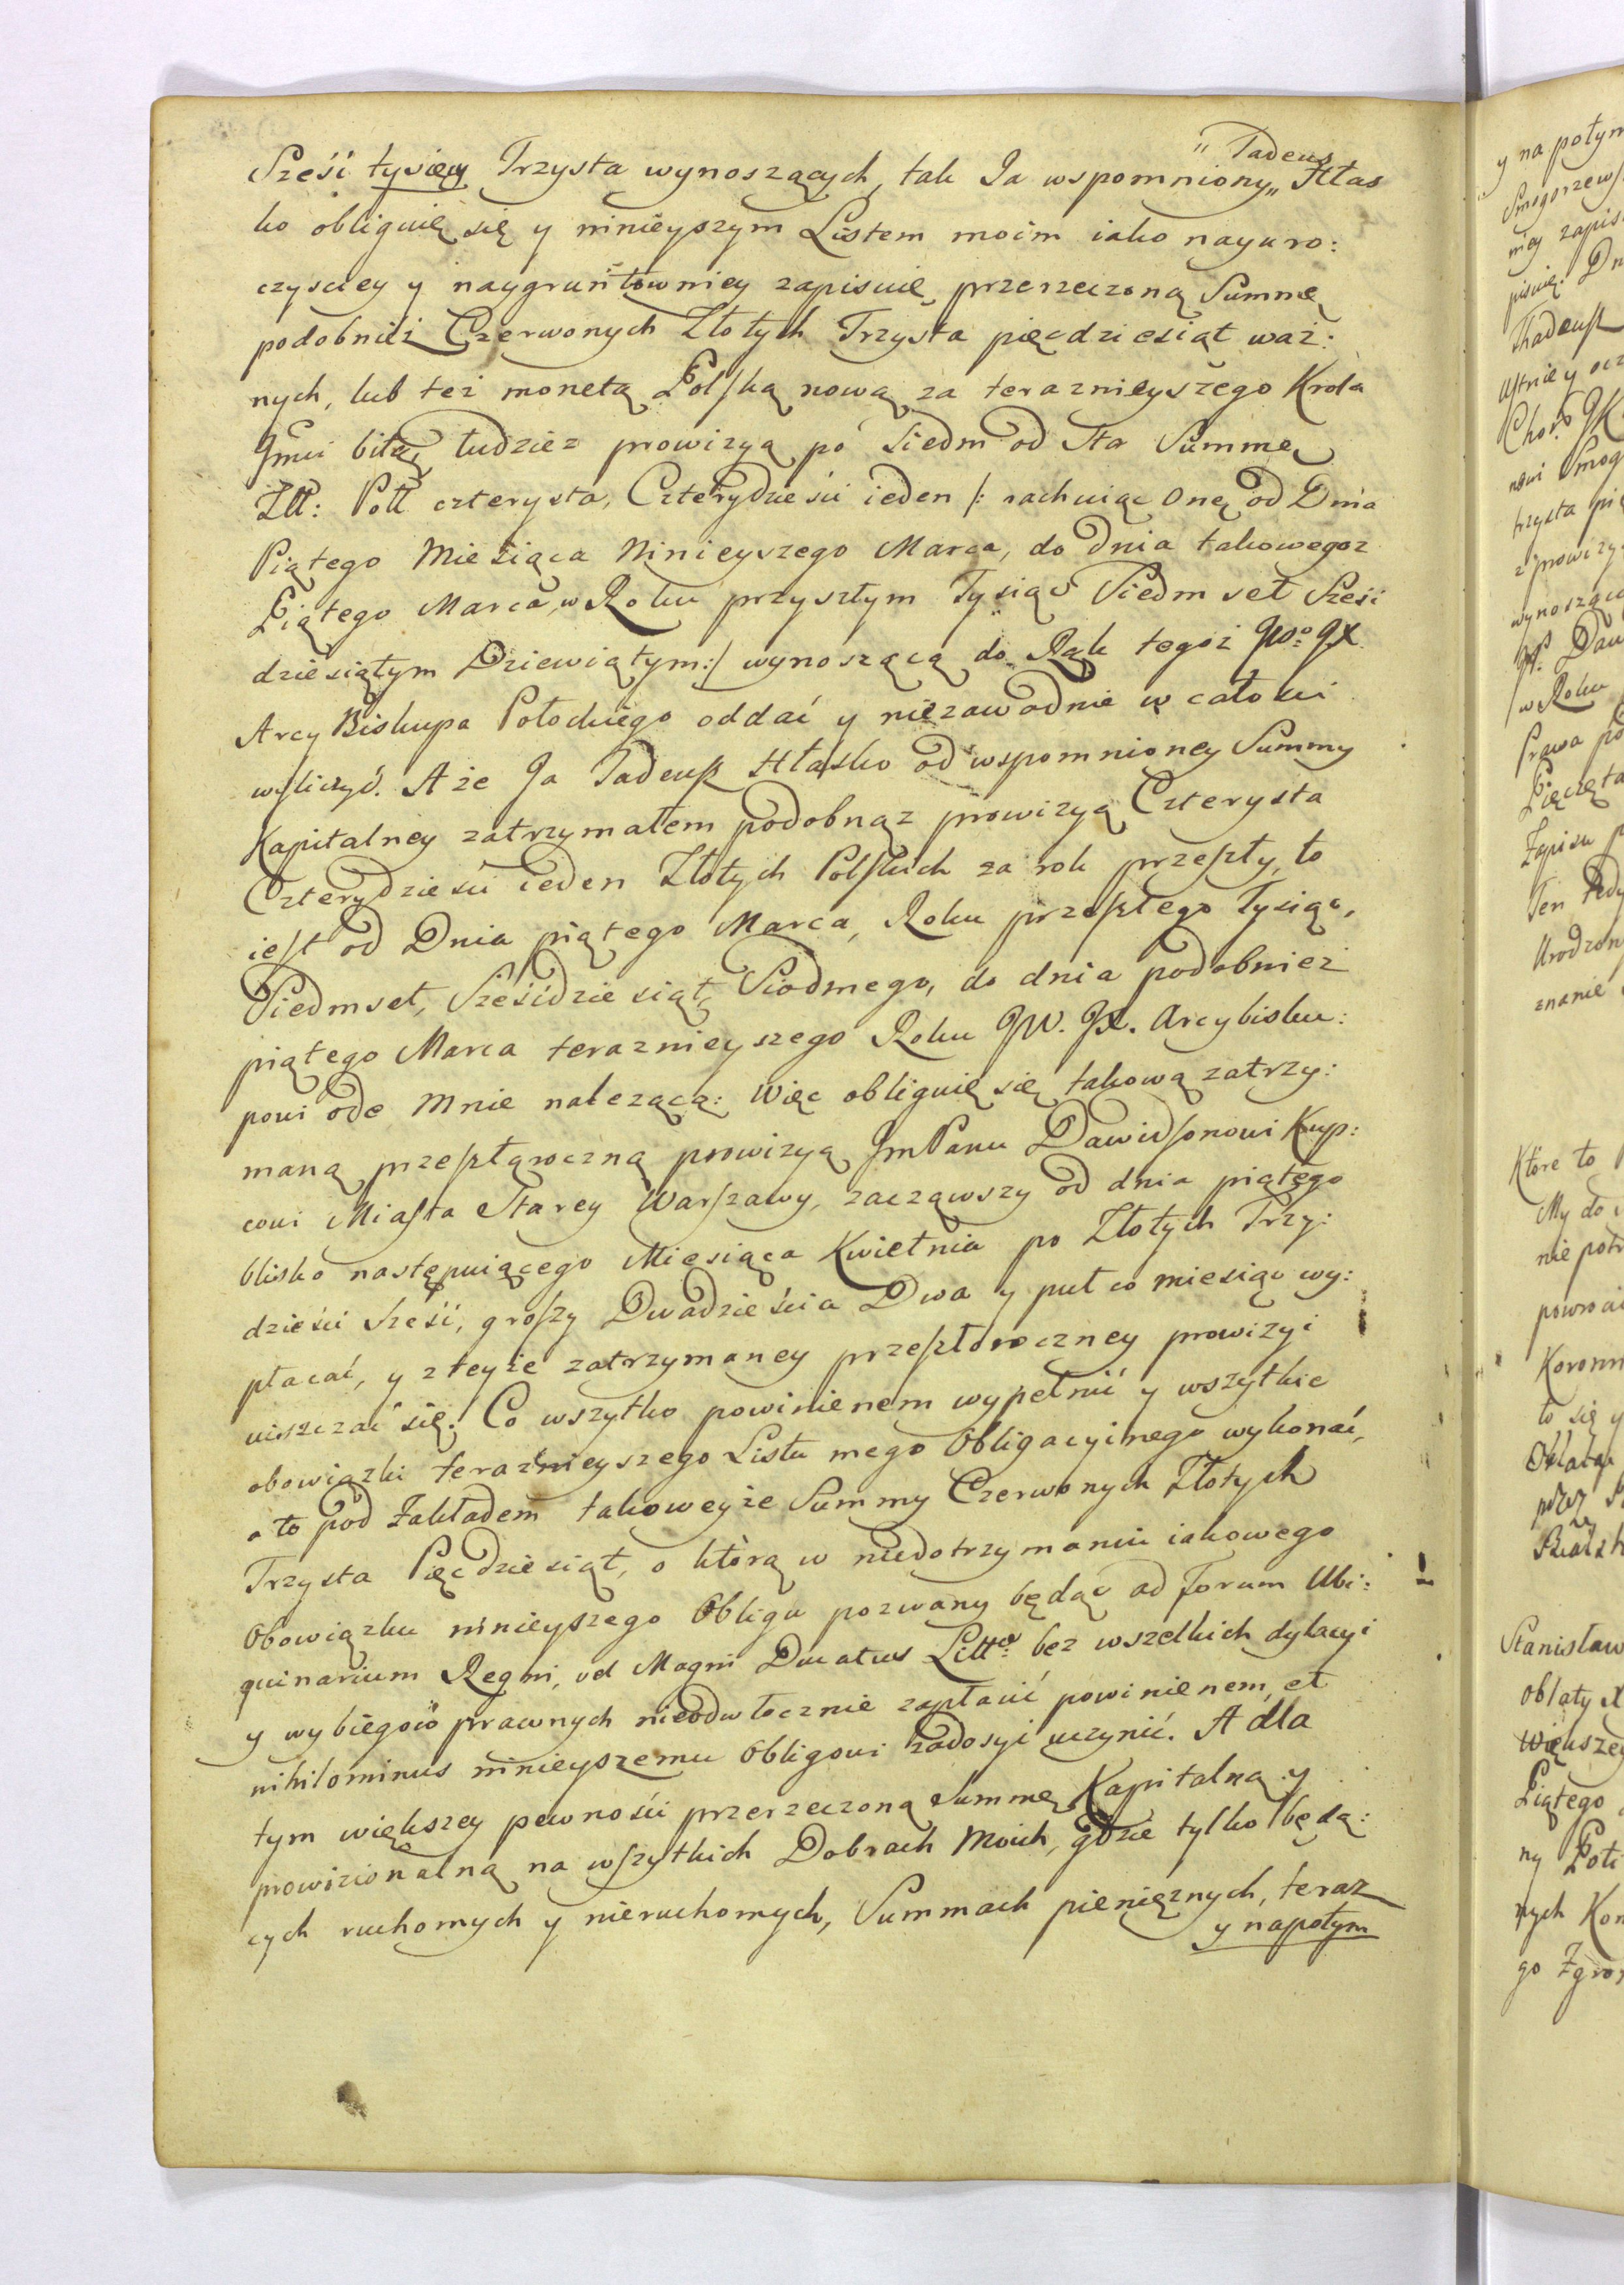 Sześć tysięcy Trzysta wynoszących, tak Ja wspomniony „ Tadeusz „ Hłas
ko obliguię się y ninieyszym Listem moim iako nayuro:
czysciey y naygruntowniey zapisuię przerzeczoną Summę
podobnież Czerwonych Złotych Trzysta pięcdziesiąt waż:
nych, lub też monetą Polską nową za teraznieyszego Krola
Jmci bitą tudzież prowizyą po siedm od sta Summę
Złł: Poll czterysta, Czterydzieści ieden /: rachuiąc onę od Dnia
Piątego Miesiąca Ninieyszego Marca, do dnia takowegoż
Piątego Marca, w Roku przyszłym Tysiąc Siedmset Sześć
dziesiątym Dziewiątym:/ wynoszącą do Rąk tegoż JWo: JX.
Arcy Biskupa Połockiego oddać y niezawodnie w całości
wyliczyć. A że Ja Tadeusz Hłasko od wspomnioney Summy
Kapitalney zatrzymałem podobnąż prowizyą Czterysta
Czterydzieści ieden Złotych Polskich za rok przeszły, to
iest od Dnia piątego Marca, Roku przeszłego Tysiąc,
Siedmset, Sześćdziesiąt, Siodmego, do dnia podobnież
piątego Marca teraznieyszego Roku JW. JX. Arcybisku:
powi ode mnie należącą: Więc obliguię się takową zatrzy:
maną przeszłąroczną prowizyą JmPanu Dawidsonowi Kup:
cowi Miasta Starey Warszawy, zacząwszy od dnia piątego
blisko następuiącego Miesiąca Kwietnia po Złotych Trzy:
dzieści sześć, groszy Dwadzieścia Dwa y puł co miesiąc wy:
płacać, y z teyże zatrzymaney przeszłoroczney prowizyi
uiszczać się. Co wszytko powinienem wypełnić y wszytkie
obowiązki teraznieyszego Listu mego Obligacyinego wykonać,
a to pod Zakładem takoweyże Summy Czerwonych Złotych
Trzysta Pięcdziesiąt, o którą w niedotrzymaniu iakowego
Obowiązku ninieyszego Obligu pozwany będąc ad forum Ubi:
quinarium Regni, vel Magni Ducatus Litto: bez wszelkich dylacyi
y wybiegow prawnych nieodwłocznie zapłacić powinienem, et
nihilominus ninieyszemu Obligowi zadosyć uczynić. A dla
tym większey pewności przerzeczoną Summę Kapitalną y
prowizionalną na wszytkich Dobrach Moich, gdzie tylko będą:
cych ruchomych y nieruchomych, Summach pieniężnych, teraz
y napotym
y na potym
Ten tedy
Które to
My do
Koronn
to się y
Stanisław
oblaty
Większey
Piątego
ny Poti
nych Kon